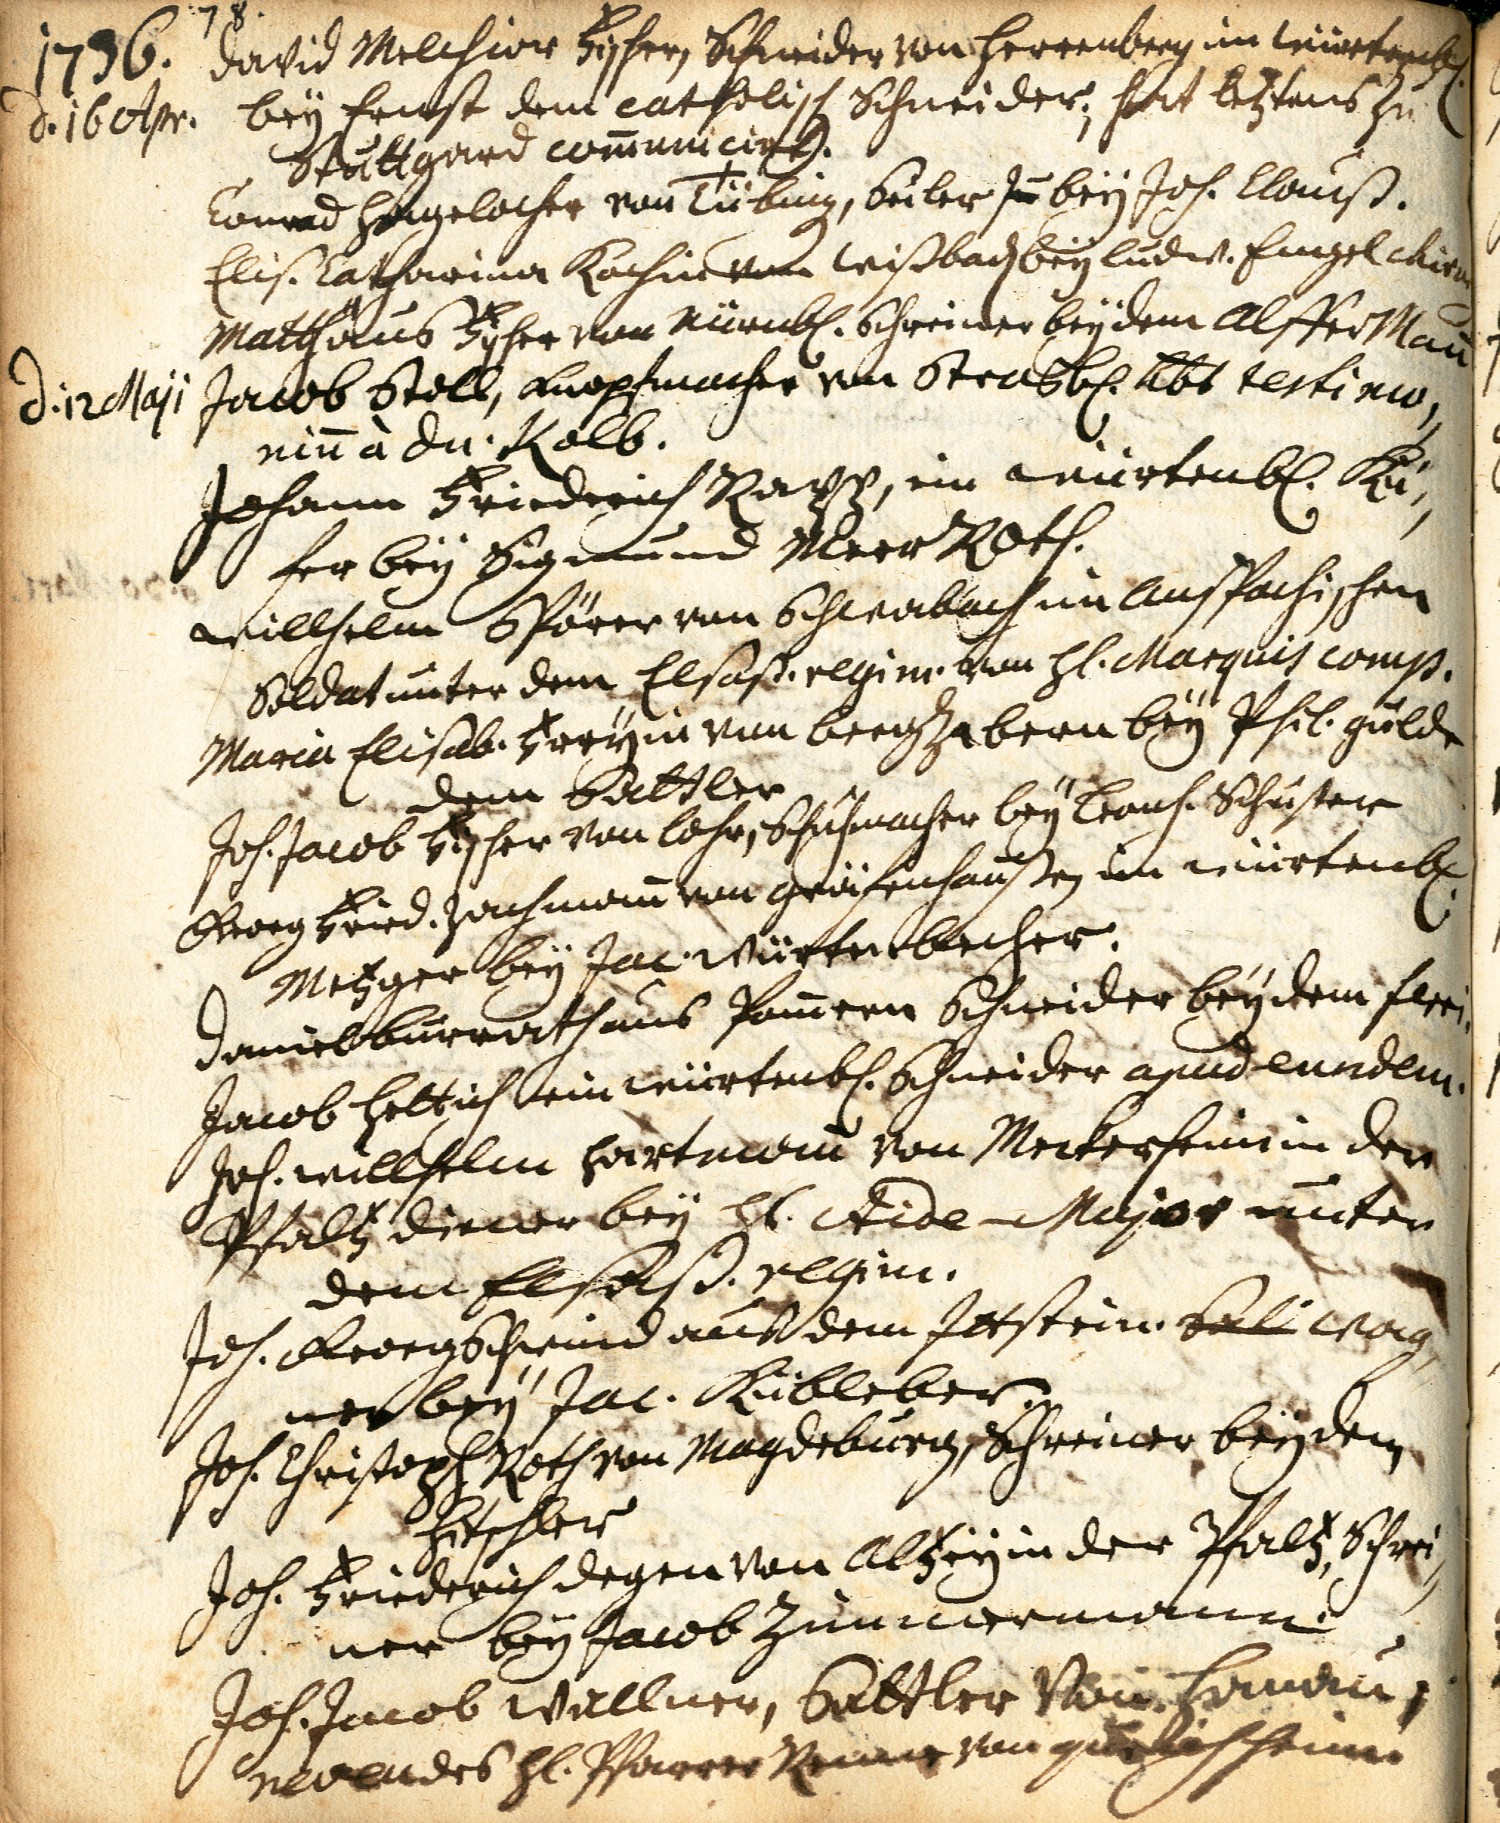 78.
1736. David Melchior Fischer, Schneider von Herrenberg im Würtenb.
d. 16 Apr. bey Ernst dem catholisch Schneider, hat letztens zu
Stuttgard com̄unicirt.
Conrad Hagelocher von Tübing, Seiler bey Joh. Clauß.
Elis. Catharina Kochin von Wißbach bey Ludw. Engel
Matthäus Fischer von Nürnb. Schreiner bey dem
d. 12 Maji Jacob Stoll, Knopfmacher von Strasb. testimo,
niū à Dn. Kolb.
Johann Friederich Rapp, ein Würtenb. Kü,
fer bey Sigmund Meer Roth.
Willhelm Spörer von Schwabach im Anspachischen
Soldat unter dem Elsaß. regim. von H. Marquis comp.
Maria Elisab. Freyin von Bergzabern bey Phil. Gülde
dem Sattler
Joh. Jacob Fischer von Lohr, Schuhmacher bey Leonh. Schuster
Georg Fried. Zachmañ von Gräfenhaussen im Würtenb.
Metzger bey Jac. Würtenbecher.
Daniel Burrath aus Pom̄ern Schneider bey dem
Jacob Hettich ein Würtenb. Schneider apud eundem.
Joh. Willhelm Hartmañ von Meckersheim in der
Pfaltz diener bey H. Aide-Major unter
dem Elsaß. regim.
Joh. Georg Schwind aus dem Itstein. Wag,
ner bey Jac. Kübleber.
Joh. Christoph Roth von Magdeburg, Schreiner bey dem
Hitschler
Joh. Friederich Degen von Altzey in der Pfaltz, Schrei,
ner bey Jacob Zimmermann.
Joh. Jacob Wallner, Sattler von Hanau,
des H. Pfarrer von